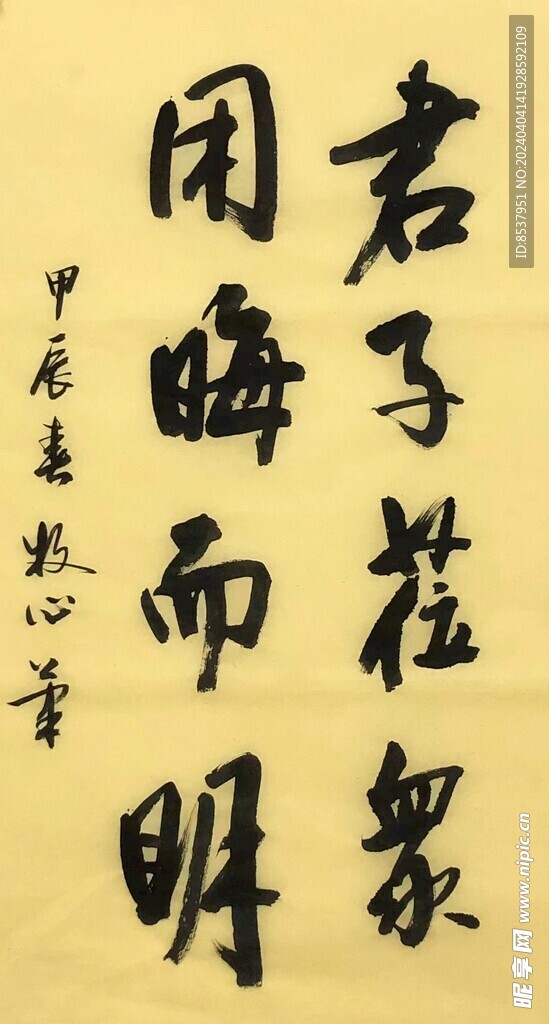 君子莅衆
用晦而明
甲辰春牧心筆
ID:8537951 NO:20240404141928592109
昵享网 www.nipic.cn